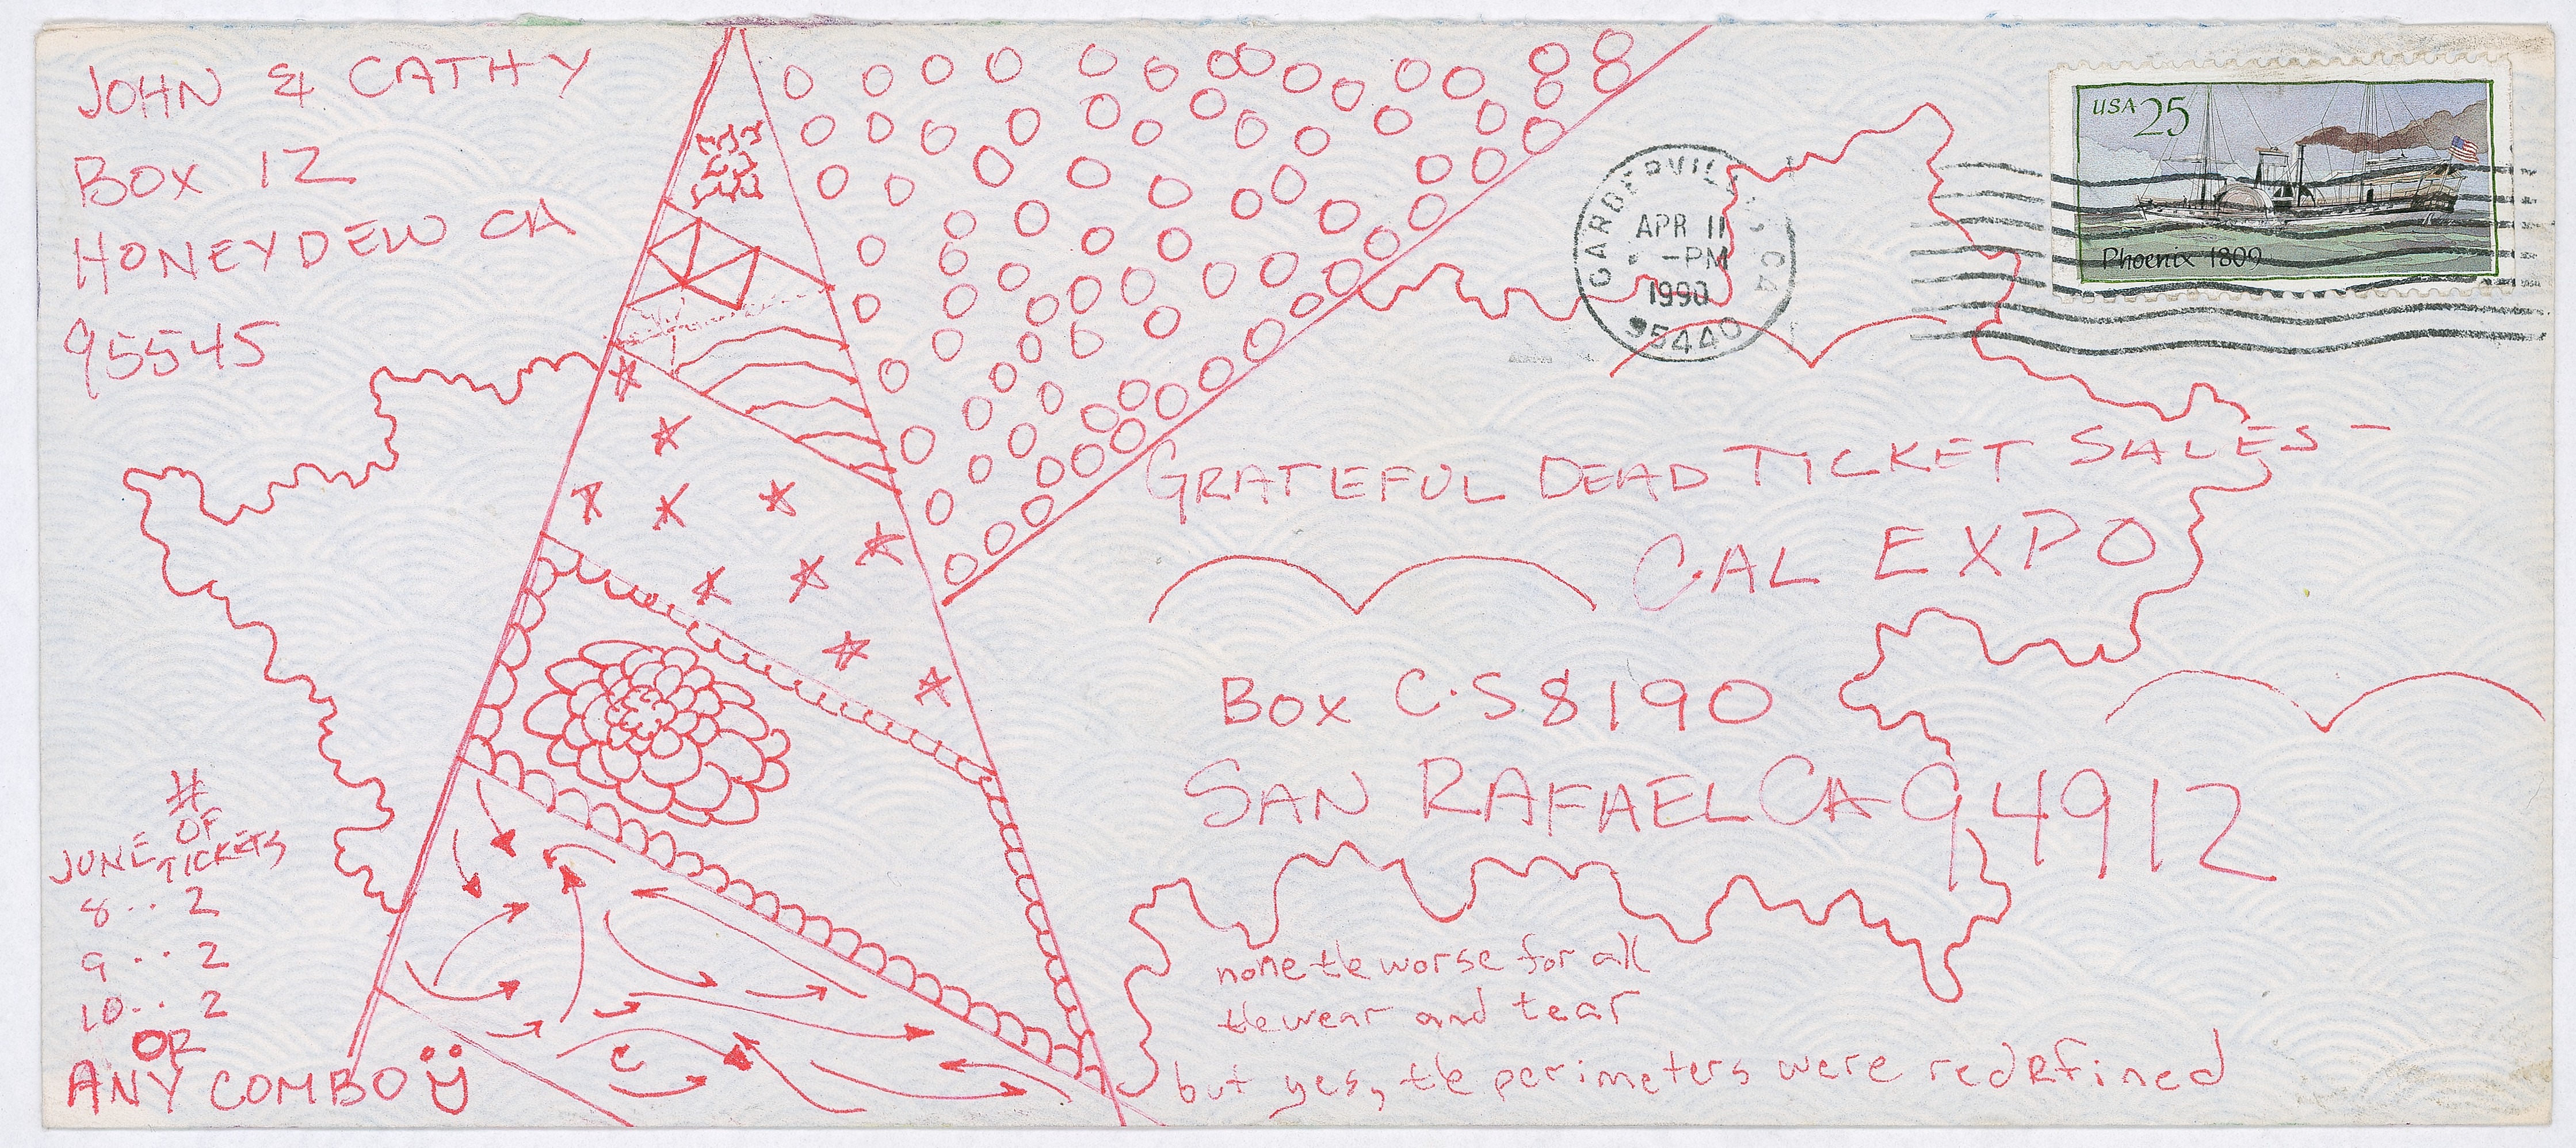 JOHN & CATHY
BOX 12
HONEYDEW CA
95545
USA 25
Phoenix 1809
GARBERVILLE CA
APR 11
-PM
1990
95440
GRATEFUL DEAD TICKET SALES-
CAL EXPO
BOX C.S 8190
SAN RAFAEL CA 94912
# OF
JUNE TICKETS
8.. 2
9 .. 2
10.. 2
OR
ANY COMBO
none the worse for all
the wear and tear
but yes, the perimeters were redefined